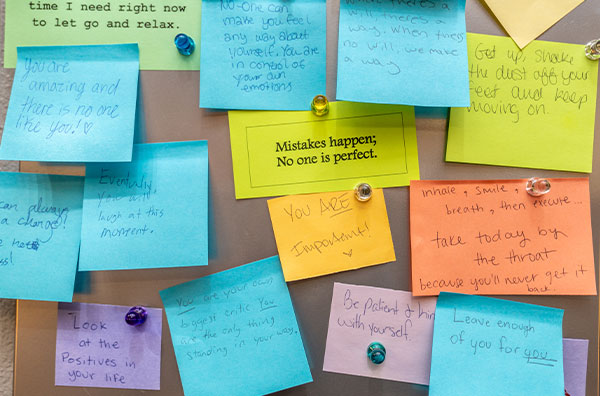 time I need right now
to let go and relax.
No-One can
make you feel
any way about
yourself. You are
in control of
your own
emotions
there's a
will, there's a
way. When there's
no will, we make
a way
Get up, shake
the dust off your
feet and keep
moving on.
You are
amazing and
there is no one
like you! ♡
Mistakes happen;
No one is perfect.
can always
a change!
Eventually
you will
laugh at this
moment.
YOU ARE
Important!
inhale, smile,
breath, then execute...
take today by
the throat
because you'll never get it
back.
Look
at the
Positives in
your life
You are your own
biggest critic You
are the only thing
standing in your way.
Be patient &
with yourself.
Leave enough
of you for you